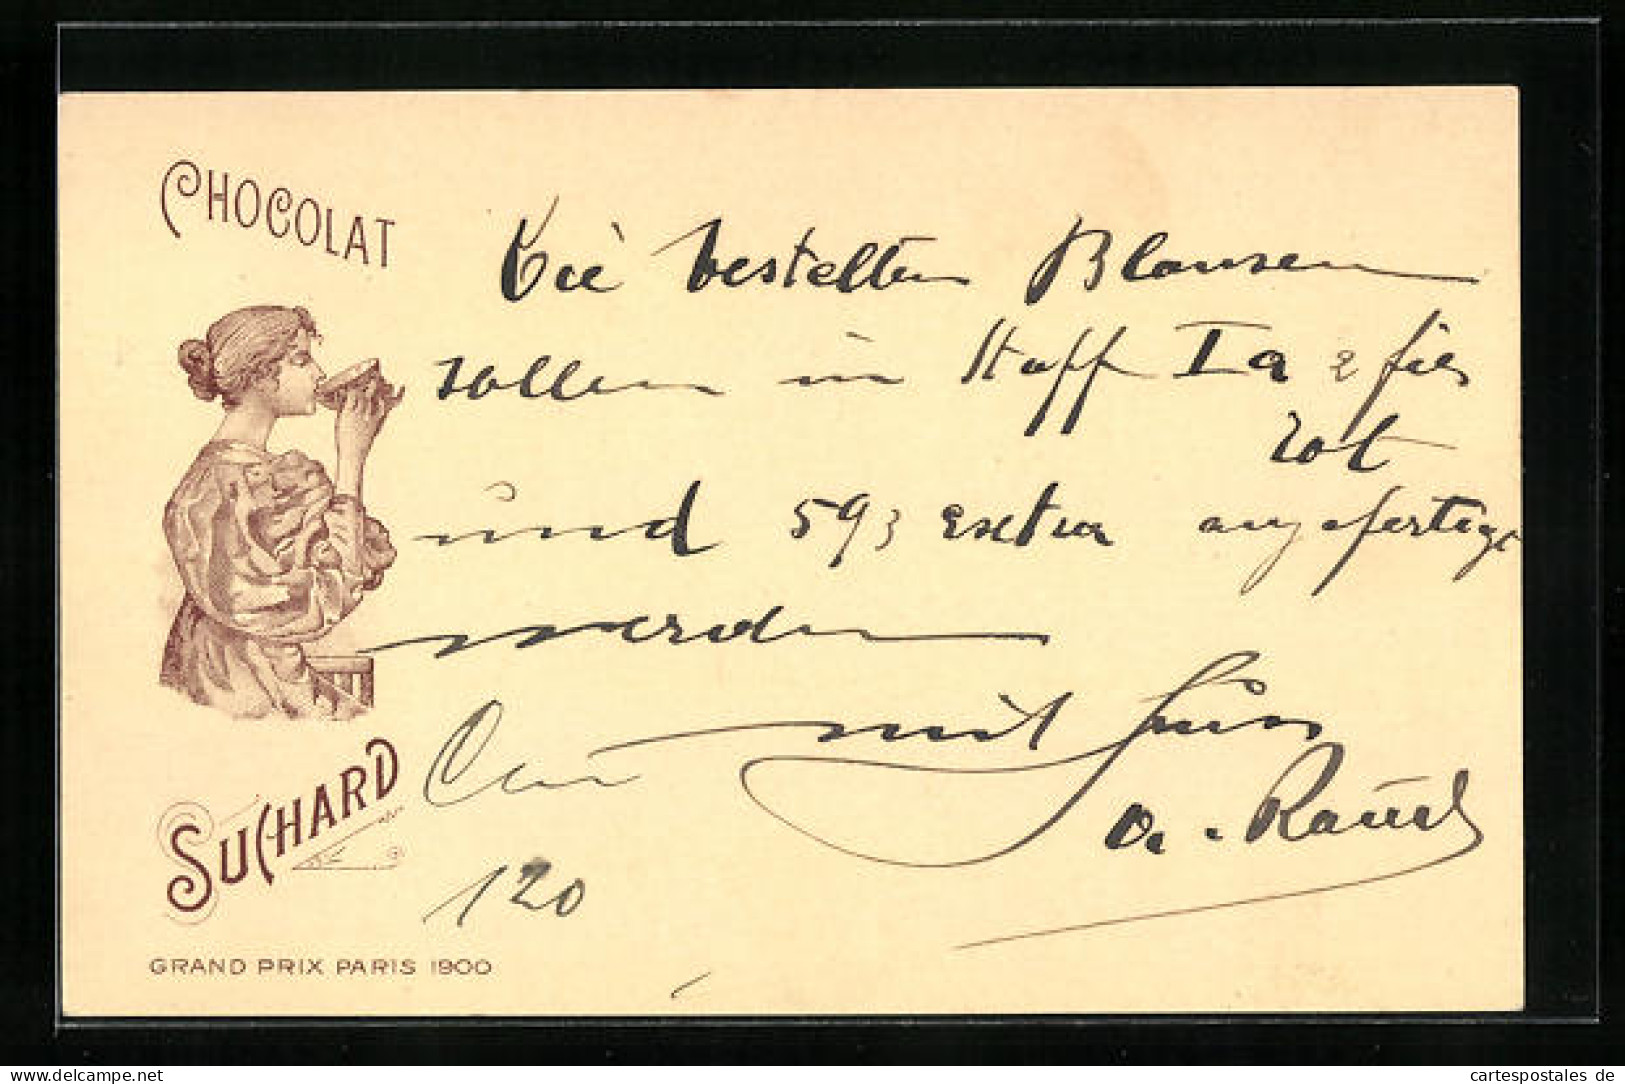 CHOCOLAT
Die bestellten Blousen
sollen in Stoff Ia 2 fies
rot
und 593 extra angefertigt
werden
mit
a. Rausch
120
SUCHARD
GRAND PRIX PARIS 1900
cartespostales de